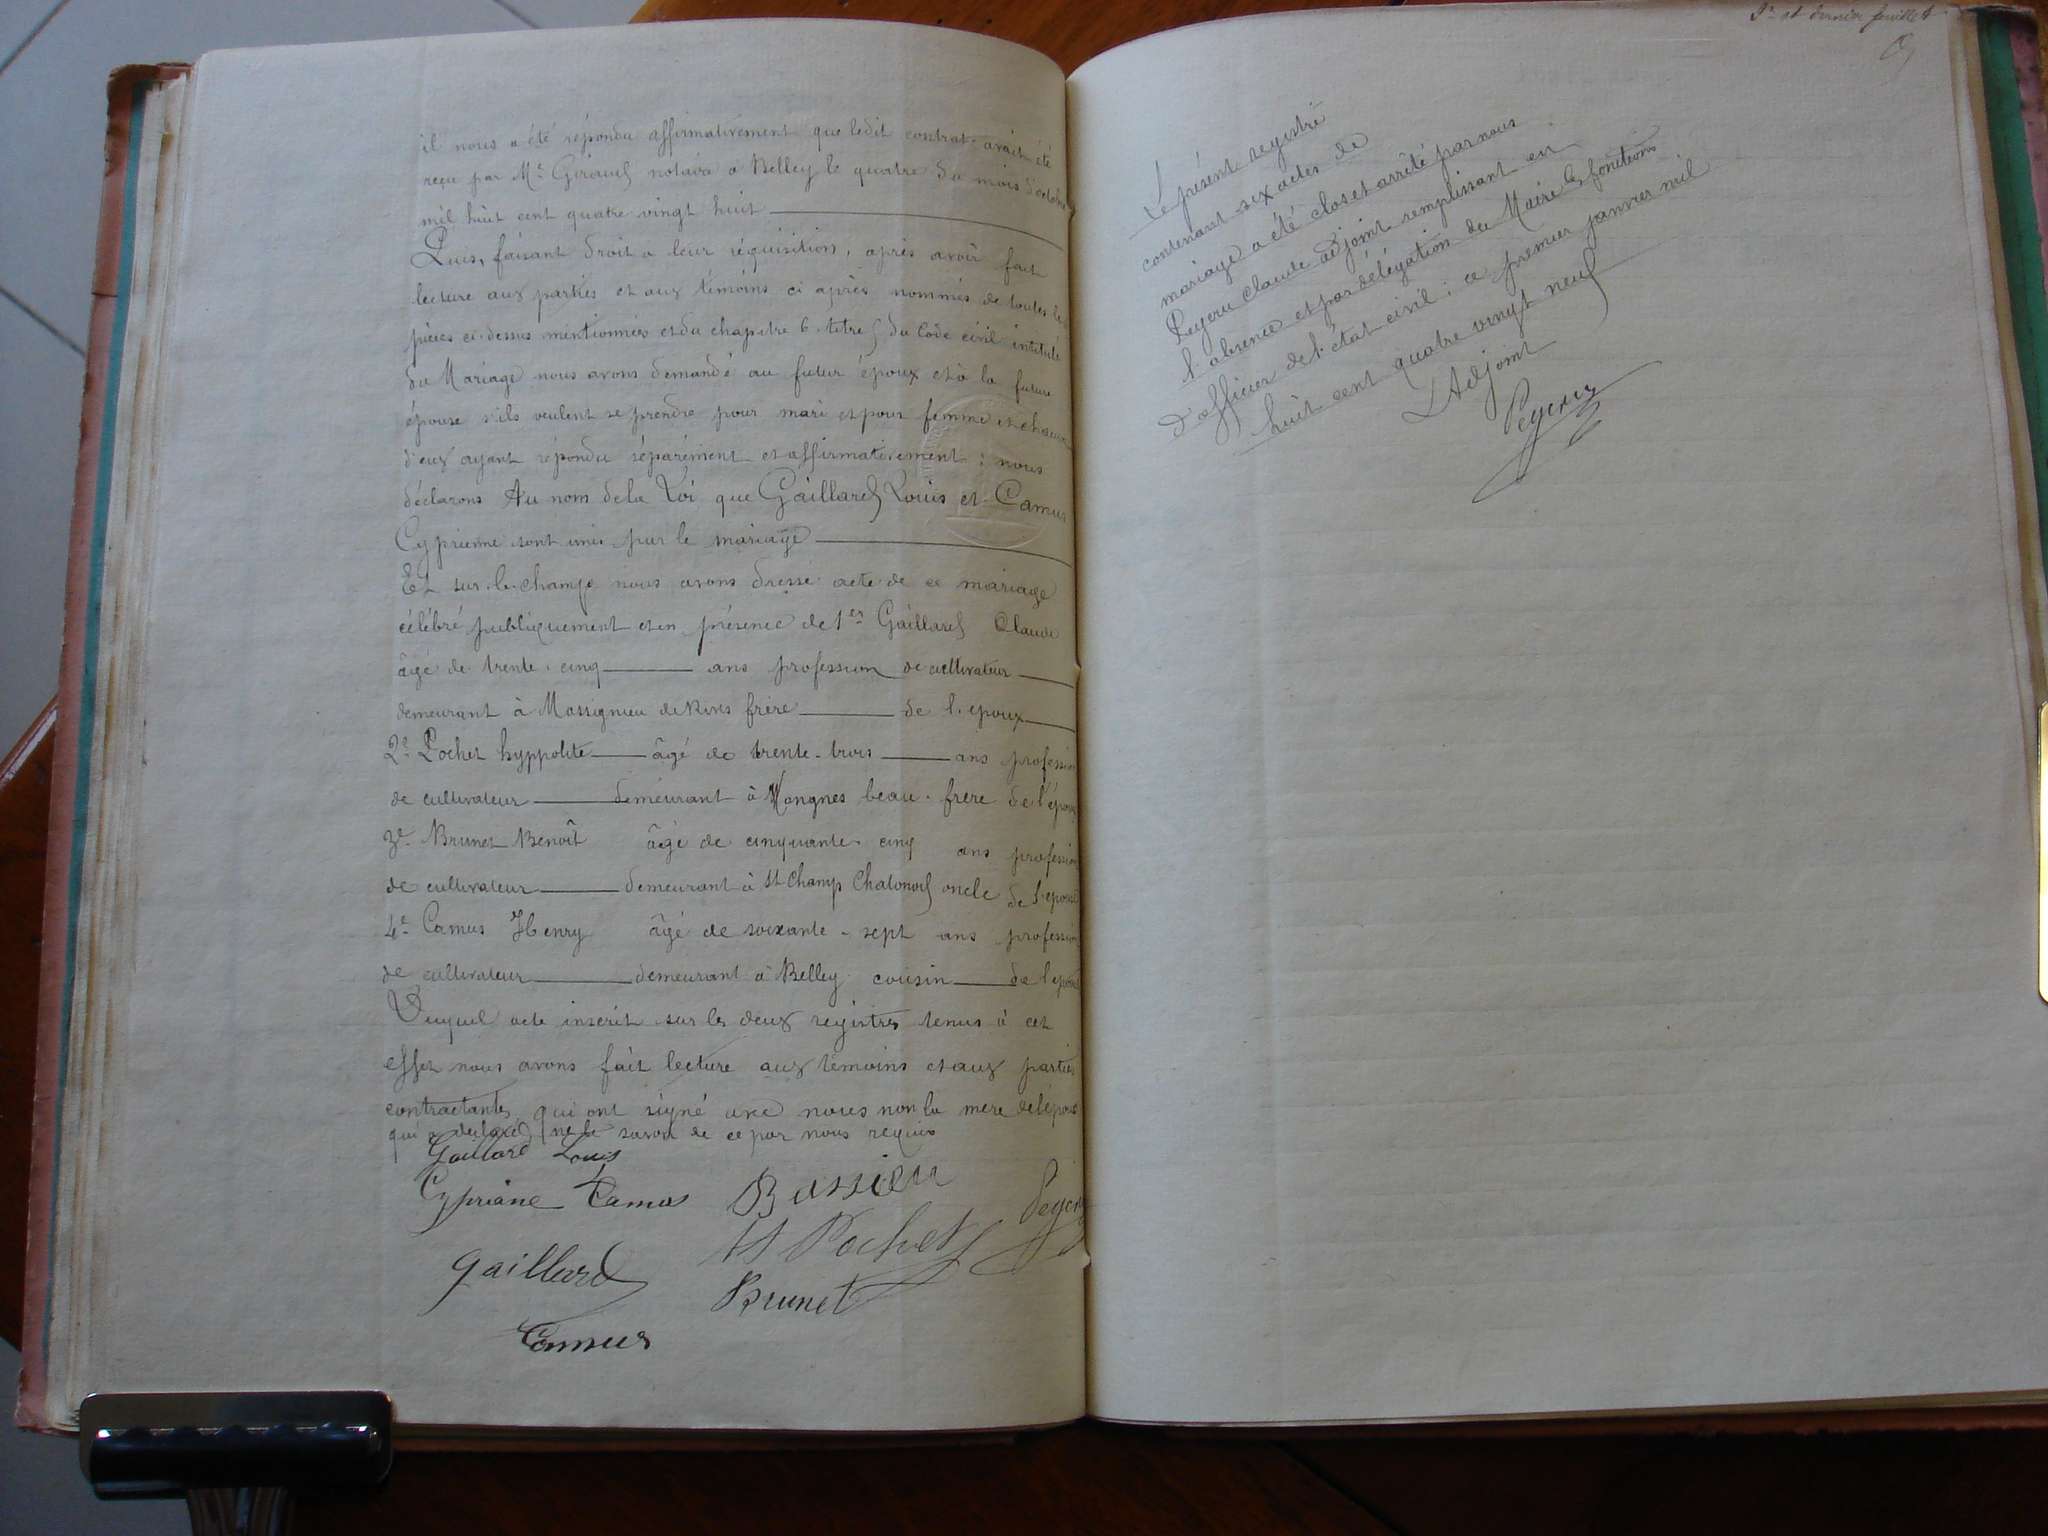 il nous a été répondu affirmativement que ledit contrat avait été
reçu par Me Giraud notaire à Belley le quatre du mois d'octobre
mil huit cent quatre vingt huit
Puis, faisant droit à leur réquisition, après avoir fait
lecture aux parties et aux témoins ci après nommés de toutes les
pièces ci-dessus mentionnées et du chapitre 6. titre 5 du Code civil intitulé
du Mariage nous avons demandé au futur époux et à la future
épouse s'ils veulent se prendre pour mari et pour femme et chacun
d'eux ayant répondu séparément et affirmativement : nous
déclarons Au nom de la Loi que Gaillard Louis et Camus
Cyprienne sont unis par le mariage
Et sur-le-champ nous avons dressé acte de ce mariage
célébré publiquement et en présence de 1er Gaillard Claude
âgé de trente-cinq ans profession de cultivateur
demeurant à Massignieu de Rives frère de l'époux
2e Pochet hyppolite âgé de trente-trois ans profession
de cultivateur demeurant à Nongnes beau-frère de l'épouse
3e Brunet Benoît âgé de cinquante-cinq ans profession
de cultivateur demeurant à St Champ Chatonod oncle de l'épouse
4e Camus Henry âgé de soixante-sept ans profession
de cultivateur demeurant à Belley cousin de l'épouse
Duquel acte inscrit sur les deux registres tenus à cet
effet nous avons fait lecture aux témoins et aux parties
contractantes qui ont signé avec nous non la mère de l'épouse
qui a déclaré ne le savoir de ce par nous requis
Gaillard Louis
Cypriane Camus Bassieu Peyeru
Gaillard H Pochet
Brunet
Camus
3e et dernier feuillet
Le présent registre
contenant six actes de
mariage a été clos et arrêté par nous
Peyeru Claude adjoint remplissant en
l'absence et par délégation du Maire les fonctions
d'officier de l'état civil ; ce premier janvier mil
huit cent quatre vingt neuf
L'Adjoint
Peyeru